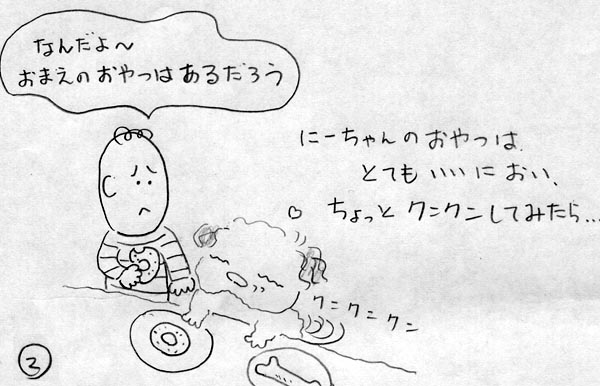 なんだよ～
おまえのおやつはあるだろう
にーちゃんのおやつは、
とてもいいにおい、
ちょっとクンクンしてみたら...
クンクンクン
3